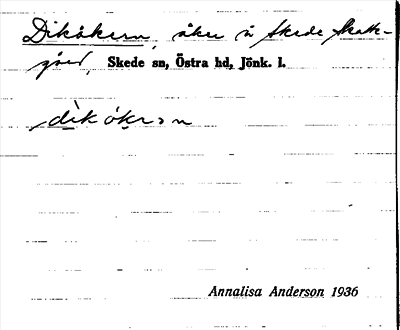 Dikåkern, åker i Skede Skatte-
gård, Skede sn, Östra hd, Jönk. l.
dìkókərən
Annalisa Anderson 1936